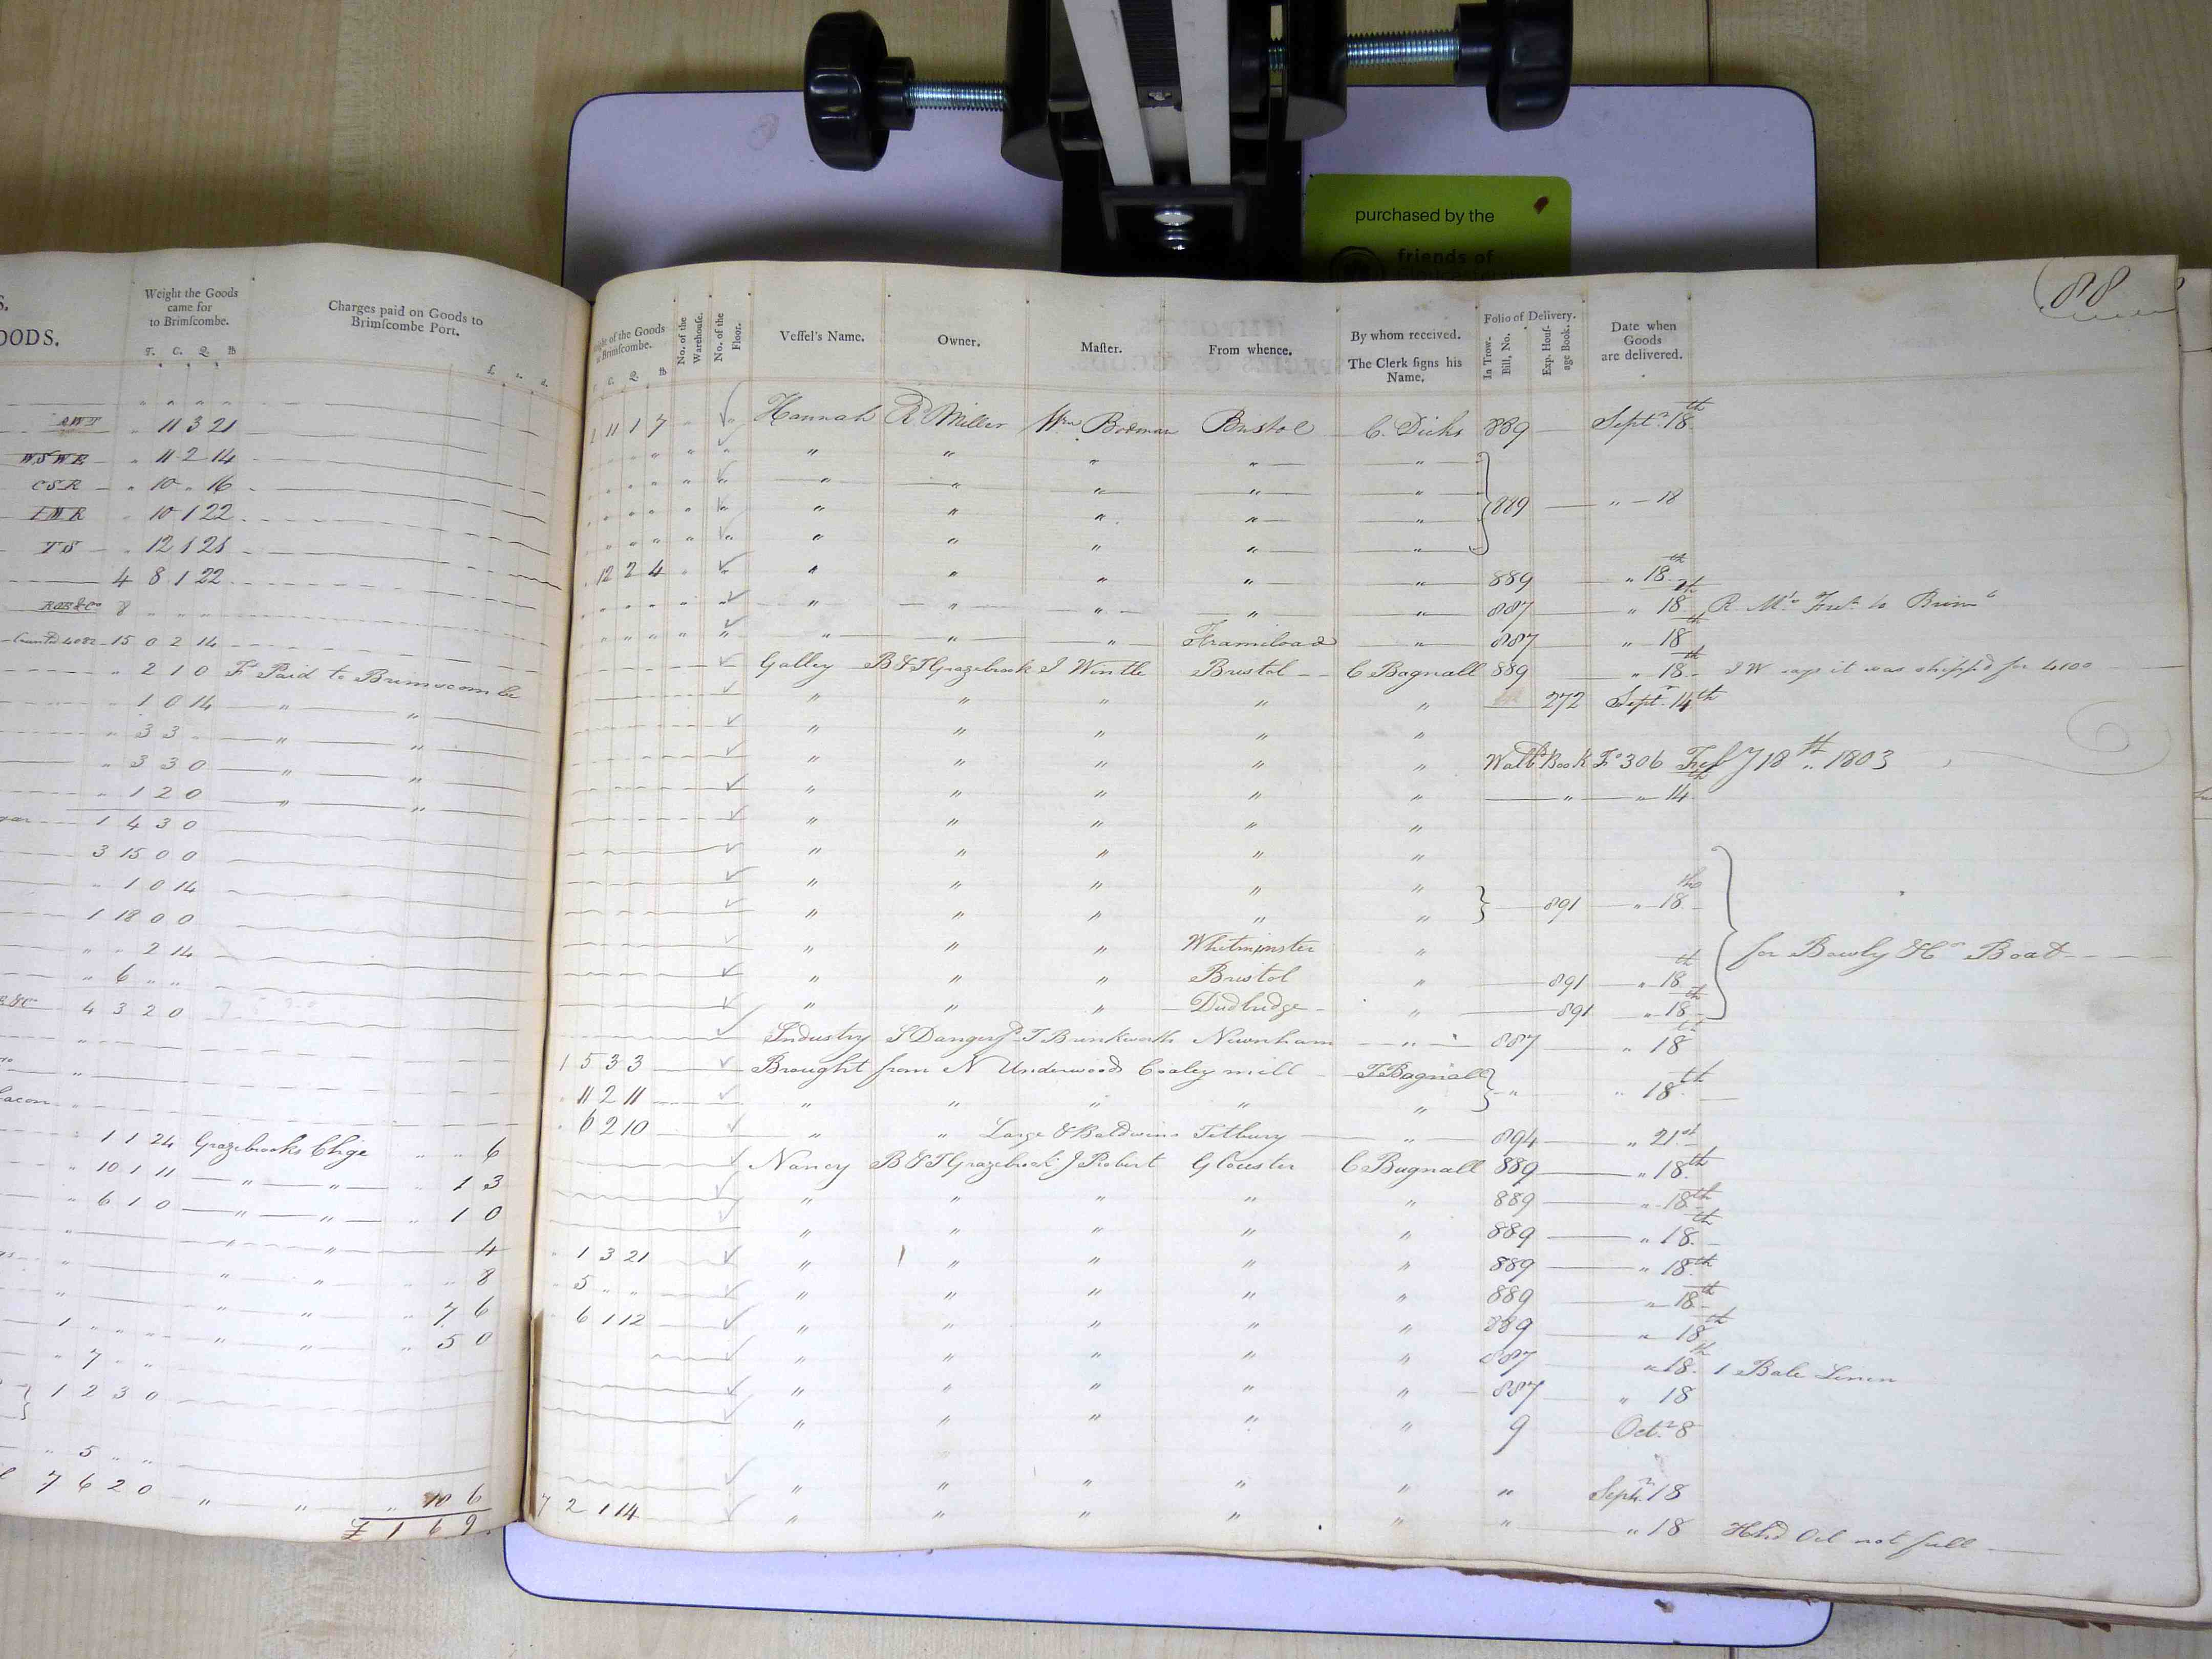 purchased by the
friends of
88
S.
OODS.
Weight the Goods came for to Brimſcombe.
T. C. Q. lb
Charges paid on Goods to Brimſcombe Port.
£ s. d.
RWT " 11 3 21
WSWR " 11 2 14
CSR " 10 " 16
10 1 22
TS " 12 1 21
4 8 1 22
8 " " "
15 0 2 14
" 2 1 0 Ft Paid to Brimscombe
" 1 0 14 " "
" 3 3 " " "
" 3 3 0 " "
" 1 2 0 " "
1 4 3 0
3 15 0 0
" 1 0 14
1 18 0 0
" " 2 14
" 6 " "
4 3 2 0
acon
" 1 1 24 Grazebrooks Chge " " 6
" 10 1 11 " " 1 3
" 6 1 0 " " 1 0
" " " 4
" " " 8
" " " 7 6
1 " " " " " 5 0
" 7 " "
1 2 3 0
" 5 " "
7 6 2 0 " " " 10 6
£ 1 6 9
of the Goods Brimſcombe.
C. Q. lb
No. of the Warehouſe.
No. of the Floor.
Veſſel's Name.
Owner.
Maſter.
From whence.
By whom received.
The Clerk ſigns his Name.
Folio of Delivery.
In Trow-Bill, No.
Exp. Houſ-age Book.
Date when Goods are delivered.
11 1 7 Hannah R Miller Wm Bodman Bristol C. Dicks 889 Septr 18th
" " " " "
" " " " " 889 " 18
" " " " "
" " " " "
12 2 4 " " " " " 889 " 18th
" " " " " 887 " 18th
" " " Framiload " 887 " 18th
Galley B & T Grazebrook J Wintle Bristol C Bagnall 889 " 18th J W says it was shipped for 4100
" " " " " 272 Septr 14th
" " " " "
" " " " " Book Fo 306 18th 1803
" " " " " " " 14th
" " " " "
" " " " "
" " " " " 891 " 18th
" " " " "
" " " Whitminster "
for Bowly & Co Boat
" " " Bristol " 891 " 18th
" " " Dudbridge " 891 " 18th
Industry S Dangerfd T Brinkworth Newnham " 887 " 18th
1 5 3 3 Brought from N Underwoods Coaley mill T Bagnall " " 18th
11 2 11 " " " " "
6 2 10 " " Large & Baldwins Tetbury " 894 " 21st
Nancy B & T Grazebrook J Robert Glouster C Bagnall 889 " 18th
" " " " " 889 " 18th
" " " " " 889 " 18th
1 3 21 " " " " " 889 " 18th
5 " " " " " " " 889 " 18th
6 1 12 " " " " " 889 " 18th
" " " " " 887 " 18th 1 Bale Linen
" " " " " 887 " 18
" " " " " 9 Octr 8
" " " " " " Septr 18
7 2 1 14 " " " " " " " 18 Hhd Oil not full